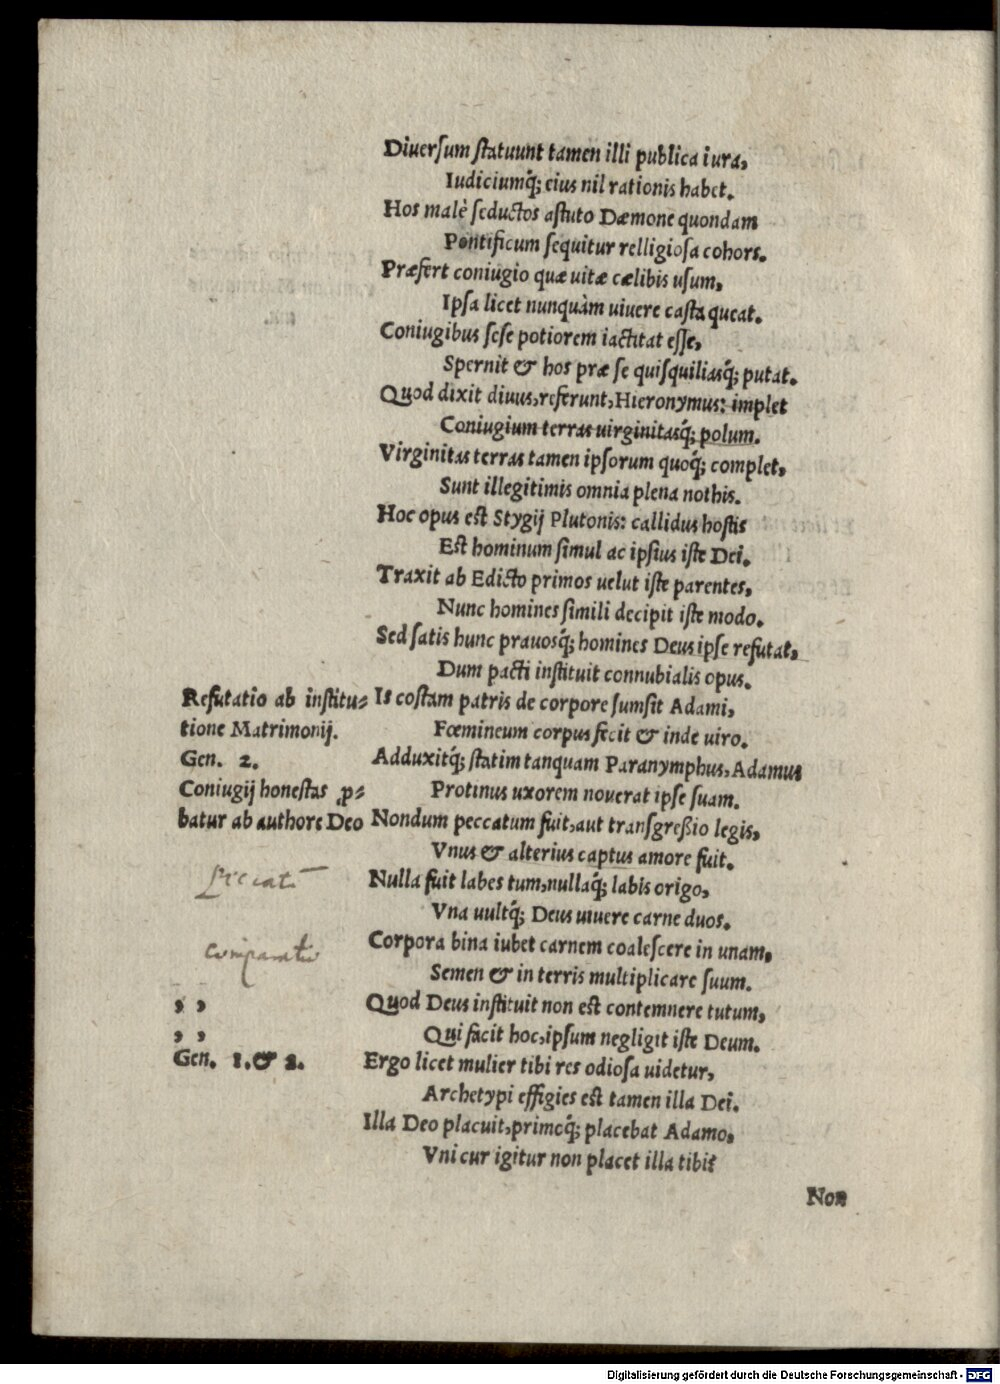 Diuerſum ſtatuunt tamen illi publica iura,
Iudiciumq́; eius nil rationis habet.
Hos malè ſeductos aſtuto Dæmone quondam
Pontificum ſequitur relligioſa cohors.
Præfert coniugio quæ uitæ cælibis uſum,
Ipſa licet nunquàm uiuere caſta queat.
Coniugibus ſeſe potiorem iactitat eſſe,
Spernit & hos præ ſe quiſquiliasq́; putat.
Quod dixit diuus, referunt, Hieronymus: implet
Coniugium terras uirginitasq́; polum.
Virginitas terras tamen ipſorum quoq́; complet,
Sunt illegitimis omnia plena nothis.
Hoc opus eſt Stygij Plutonis: callidus hoſtis
Eſt hominum ſimul ac ipſius iſte Dei.
Traxit ab Edicto primos uelut iſte parentes,
Nunc homines ſimili decipit iſte modo.
Sed ſatis hunc prauosq́; homines Deus ipſe refutat,
Dum pacti inſtituit connubialis opus.
Refutatio ab inſtitu-
tione Matrimonij.
Gen. 2.
Coniugij honeſtas ꝓ-
batur ab authore Deo
Is coſtam patris de corpore ſumſit Adami,
Fœmineum corpus fecit & inde uiro.
Adduxitq́; ſtatim tanquam Paranymphus, Adamus
Protinus uxorem nouerat ipſe ſuam.
Nondum peccatum fuit, aut tranſgreßio legis,
Vnus & alterius captus amore fuit.
Nulla fuit labes tum, nullaq́; labis origo,
Vna uultq́; Deus uiuere carne duos.
Corpora bina iubet carnem coaleſcere in unam,
Semen & in terris multiplicare ſuum.
, ,
, ,
Gen. 1. & 2.
Quod Deus inſtituit non eſt contemnere tutum,
Qui facit hoc, ipſum negligit iſte Deum.
Ergo licet mulier tibi res odioſa uidetur,
Archetypi effigies eſt tamen illa Dei.
Illa Deo placuit, primoq́; placebat Adamo,
Vni cur igitur non placet illa tibi?
Non
Digitalisierung gefördert durch die Deutsche Forschungsgemeinschaft - DFG